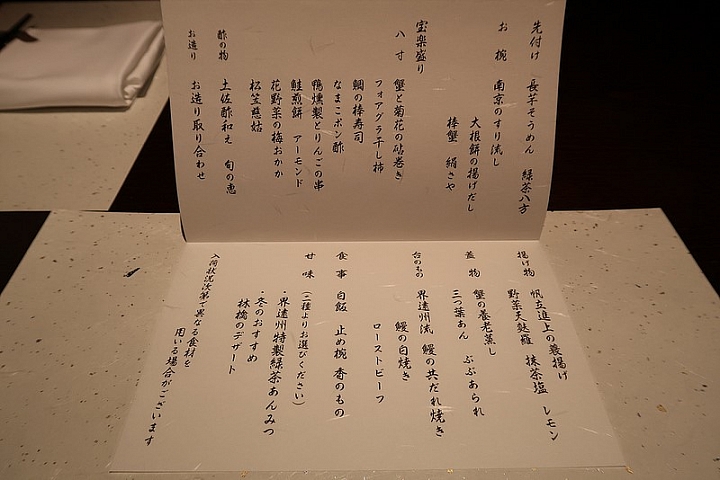 先付け　長芋そうめん　緑茶八方
お椀　南京のすり流し
大根餅の揚げだし
棒蟹　絹さや
宝楽盛り
八寸　蟹と菊花の砧巻き
フォアグラ干し柿
鯛の棒寿司
なまこポン酢
鴨燻製とりんごの串
鮭煎餅　アーモンド
花野菜の梅おかか
松笠慈姑
酢の物　土佐酢和え　旬の恵
お造り　お造り取り合わせ
揚げ物　帆立進上の蓑揚げ
野菜天麩羅　抹茶塩　レモン
蓋物　蟹の養老蒸し
三つ葉あん　ぶぶあられ
台のもの　界遠州流　鰻の共だれ焼き
鰻の白焼き
ローストビーフ
食事　白飯　止め椀　香のもの
甘味　（二種よりお選びください）
・界遠州特製緑茶あんみつ
・冬のおすすめ
林檎のデザート
入荷状況次第で異なる食材を
用いる場合がございます